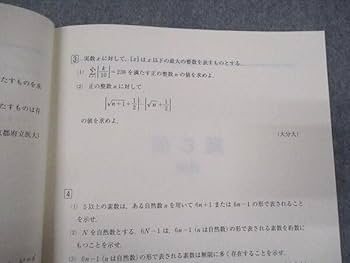 たすものを求
たすものは有
京都府立医大)
3 実数 x に対して, [x] は x 以下の最大の整数を表すものとする.
(1) Σ[k/10]=238 を満たす正の整数 n の値を求めよ.
(2) 正の整数 n に対して
[√n+1+1/2]-[√n+1/2]
の値を求めよ.
(大分大)
4
(1) 5 以上の素数は, ある自然数 n を用いて 6n+1 または 6n-1 の形で表されること
を示せ.
(2) N を自然数とする. 6N-1 は, 6n-1 (n は自然数) の形で表される素数を約数に
もつことを示せ.
(3) 6n-1 (n は自然数) の形で表される素数は無限に多く存在することを示せ.